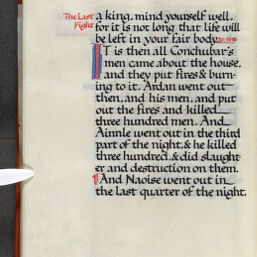 The Last
Fight
a king, mind yourself well,
for it is not long that life will
be left in your fair body.
IT is then all Conchubar's
men came about the house,
and they put fires & burn-
ing to it. Ardan went out
then, and his men, and put
out the fires and killed
three hundred men. And
Ainnle went out in the third
part of the night, & he killed
three hundred, & did slaught-
er and destruction on them.
¶ And Naoise went out in
the last quarter of the night,